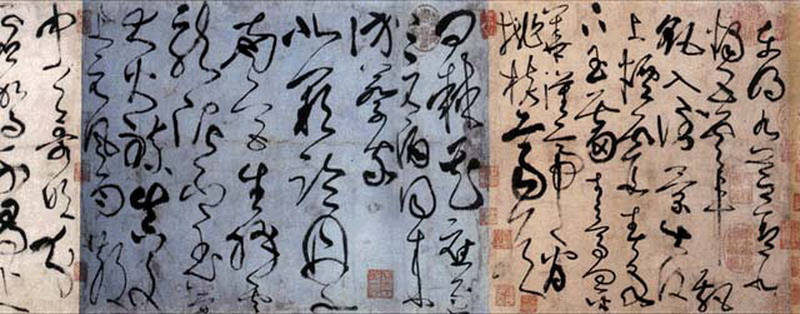 東明九芝蓋北
燭五雲車飄
飖入倒景出沒
上煙霞春泉
下玉霤青鳥向金
華漢帝看
桃核齊侯
問棗花應逐
上元酒同來
訪蔡家
北闕臨丹水
南宮生絳雲
龍泥印玉簡
大火練真文
上元風雨散
中天哥吹